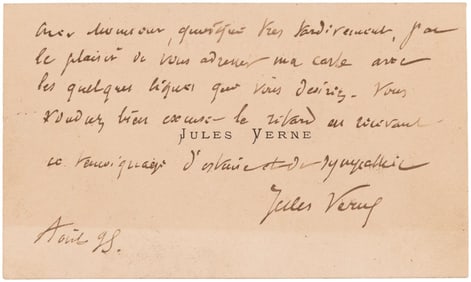 Cher Monsieur, quoique très tardivement, j'ai
le plaisir de vous adresser ma carte avec
les quelques lignes que vous désirez. Vous
voudrez bien excuser le retard en recevant
JULES VERNE
ce témoignage d'estime et de sympathie
Jules Verne
Août 95.